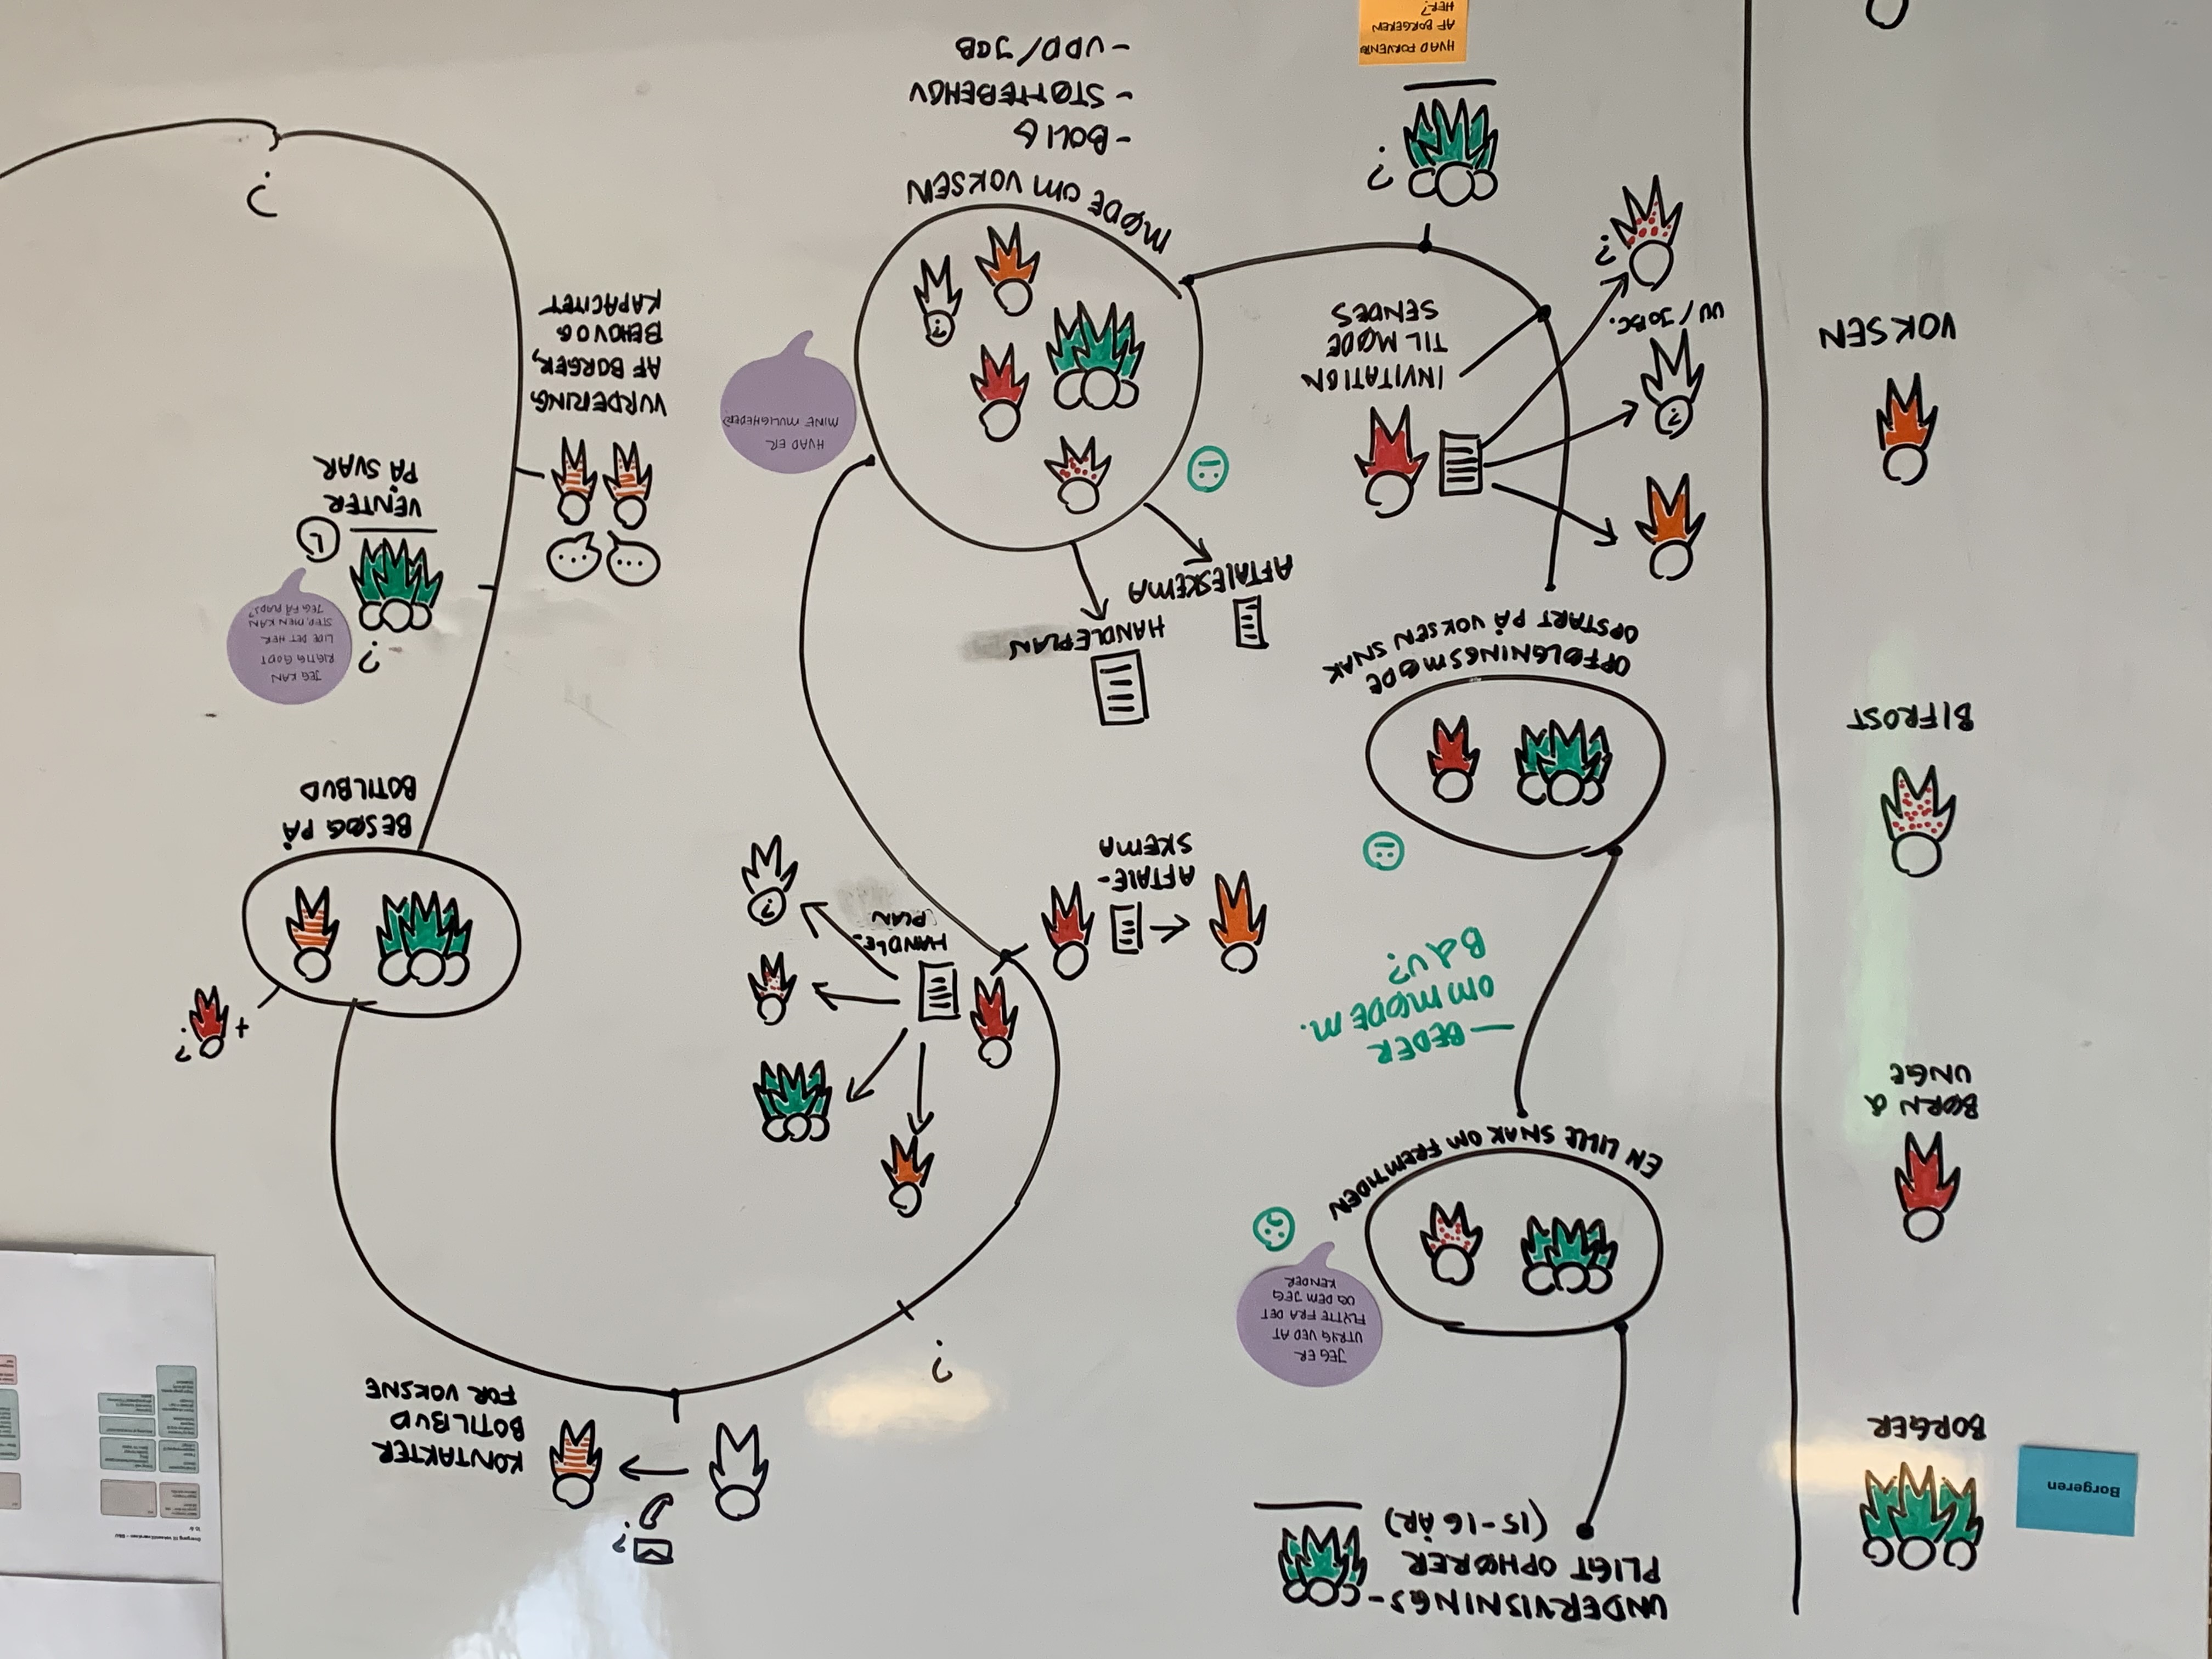 Borgeren
BORGER
BØRN &
UNGE
BIFROST
VOKSEN
UNDERVISNINGS-
PLIGT OPHØRER
(15-16 ÅR)
JEG ER
UTRYG VED AT
FLYTTE FRA DET
OG DEM JEG
KENDER
EN LILLE SNAK OM FREMTIDEN
BEDER
OM MØDE M.
B&U?
OPFØLGNINGSMØDE
OPSTART PÅ VOKSEN SNAK
INVITATION
TIL MØDE
SENDES
?
UU/JOBC.
?
?
HVAD FORVENTES
AF BORGEREN
HER?
MØDE OM VOKSEN
- BOLIG
- STØTTEBEHOV
- UDD/JOB
?
HVAD ER
MINE MULIGHEDER?
HANDLEPLAN
AFTALESKEMA
AFTALE-
SKEMA
HANDLE-
PLAN
?
?
?
KONTAKTER
BOTILBUD
FOR VOKSNE
+
?
BESØG PÅ
BOTILBUD
?
JEG KAN
RIGTIG GODT
LIDE DET HER
STED, MEN KAN
JEG FÅ PLADS?
VENTER
PÅ SVAR
...
...
VURDERING
AF BORGER,
BEHOV OG
KAPACITET
?